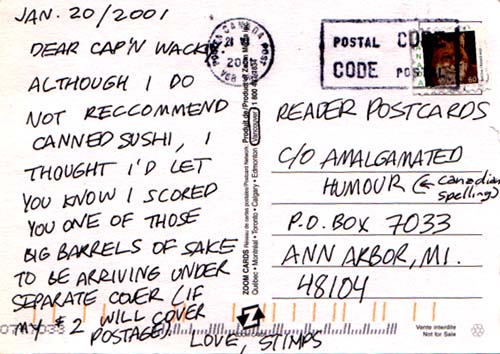 JAN. 20/2001
DEAR CAP'N WACKY
ALTHOUGH I DO
NOT RECCOMMEND
CANNED SUSHI, I
THOUGHT I'D LET
YOU KNOW I SCORED
YOU ONE OF THOSE
BIG BARRELS OF SAKE
TO BE ARRIVING UNDER
SEPARATE COVER (IF
MY $2 WILL COVER
POSTAGE). LOVE, STIMPS
ZOOM CARDS Réseau de cartes postales/Postcard Network Produit de/Product of Zoom Media
Québec • Montréal • Toronto • Calgary • Edmonton Vancouver 1 800
CANADA
20
POSTAL CODE
CODE POSTAL
60
READER POSTCARDS
C/O AMALGAMATED
HUMOUR (← canadian
spelling)
P.O. BOX 7033
ANN ARBOR, MI.
48104
Vente interdite
Not for Sale